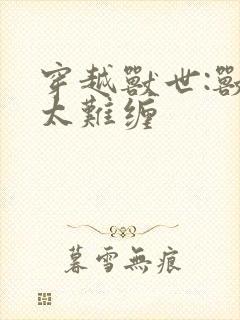 穿越獸世:獸
太難缠
暮雪無痕